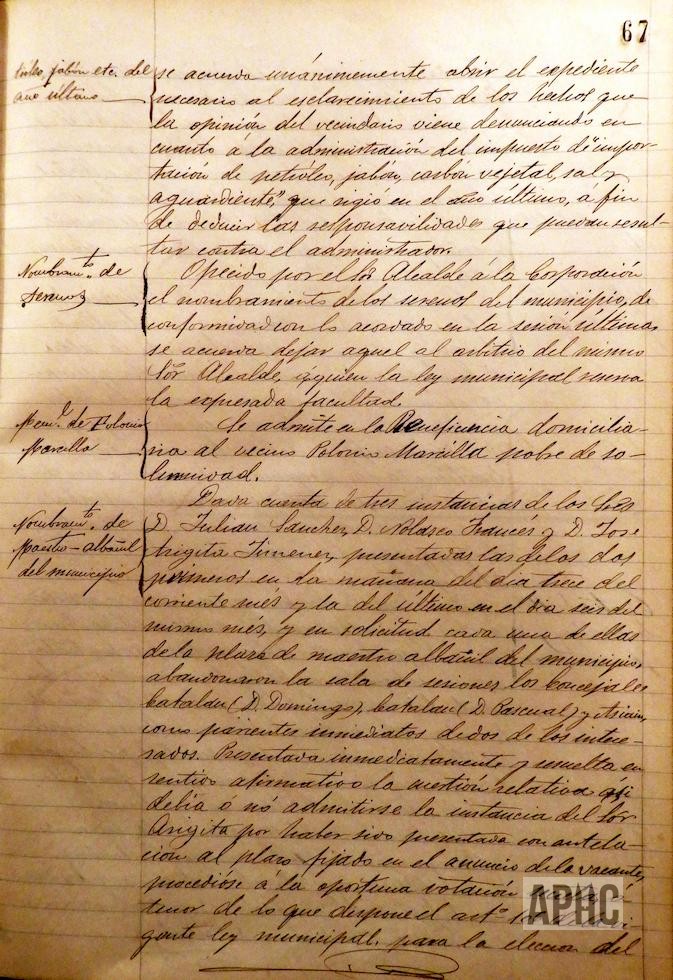 67
tróleo, jabón etc. del
año último
se acuerda unánimemente abrir el expediente
necesario al esclarecimiento de los hechos que
la opinión del vecindario viene denunciando en
cuanto á la administración del impuesto de "impor-
tación de petróleo, jabón, carbón vegetal, sal y
aguardiente," que rigió en el año último, á fin
de deducir las responsavilidades que puedan resul-
tar contra el administrador.
Nombramto. de
Serenos
Opecido por el Sr. Alcalde á la Corporación
el nombramiento de los serenos del municipio, de
conformidad con lo acordado en la sesión última,
se acuerda dejar aquel al arbitrio del mismo
Sor. Alcalde, á quien la ley municipal reserva
la expresada facultad.
de Polonio
Marcilla
Se admite en la Beneficencia domicilia-
ria al vecino Polonio Marcilla pobre de so-
lemnidad.
Nombramto. de
Maestro-albañil
del municipio
Dada cuenta de tres instancias de los Sres
D. Julian Sanchez, D. Nolasco Francés y D. José
Arigita Jimenez, presentadas las de los dos
primeros en la mañana del dia trece del
corriente més y la del último en el dia seis del
mismo més, y en solicitud cada una de ellas
de la plaza de maestro albañil del municipio,
abandonaron la sala de sesiones los Concejales
Catalán (D. Domingo), Catalan (D. Pascual) y
como parientes inmediatos de dos de los intere-
sados. Presentada inmediatamente y resuelta en
sentido afirmativo la cuestión relativa á si
debía ó nó admitirse la instancia del Sor.
Arigita por haber sido presentada con antela-
ción al plazo fijado en el anuncio de la vacante,
procedióse á la oportuna votación
tenor de lo que dispone el arto.
gente ley municipal, para la eleccion del
APHC